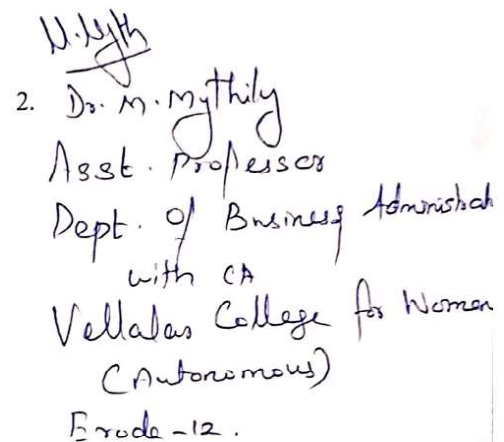 M. Myth
2. Dr. M. Mythily
Asst. Professor
Dept. of Business Administrat
with CA
Vellalar College for Women
(Autonomous)
Erode -12.